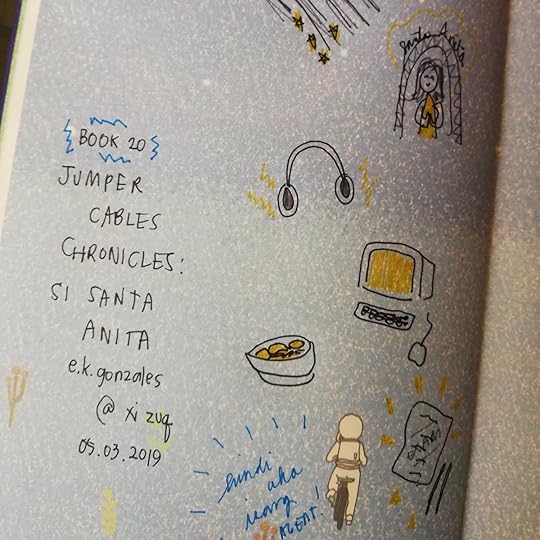 Santa Anita
BOOK 20
JUMPER
CABLES
CHRONICLES:
SI SANTA
ANITA
e.k.gonzales
@ xi zuq
05.03.2019
hindi
ako
isang
AGENT!